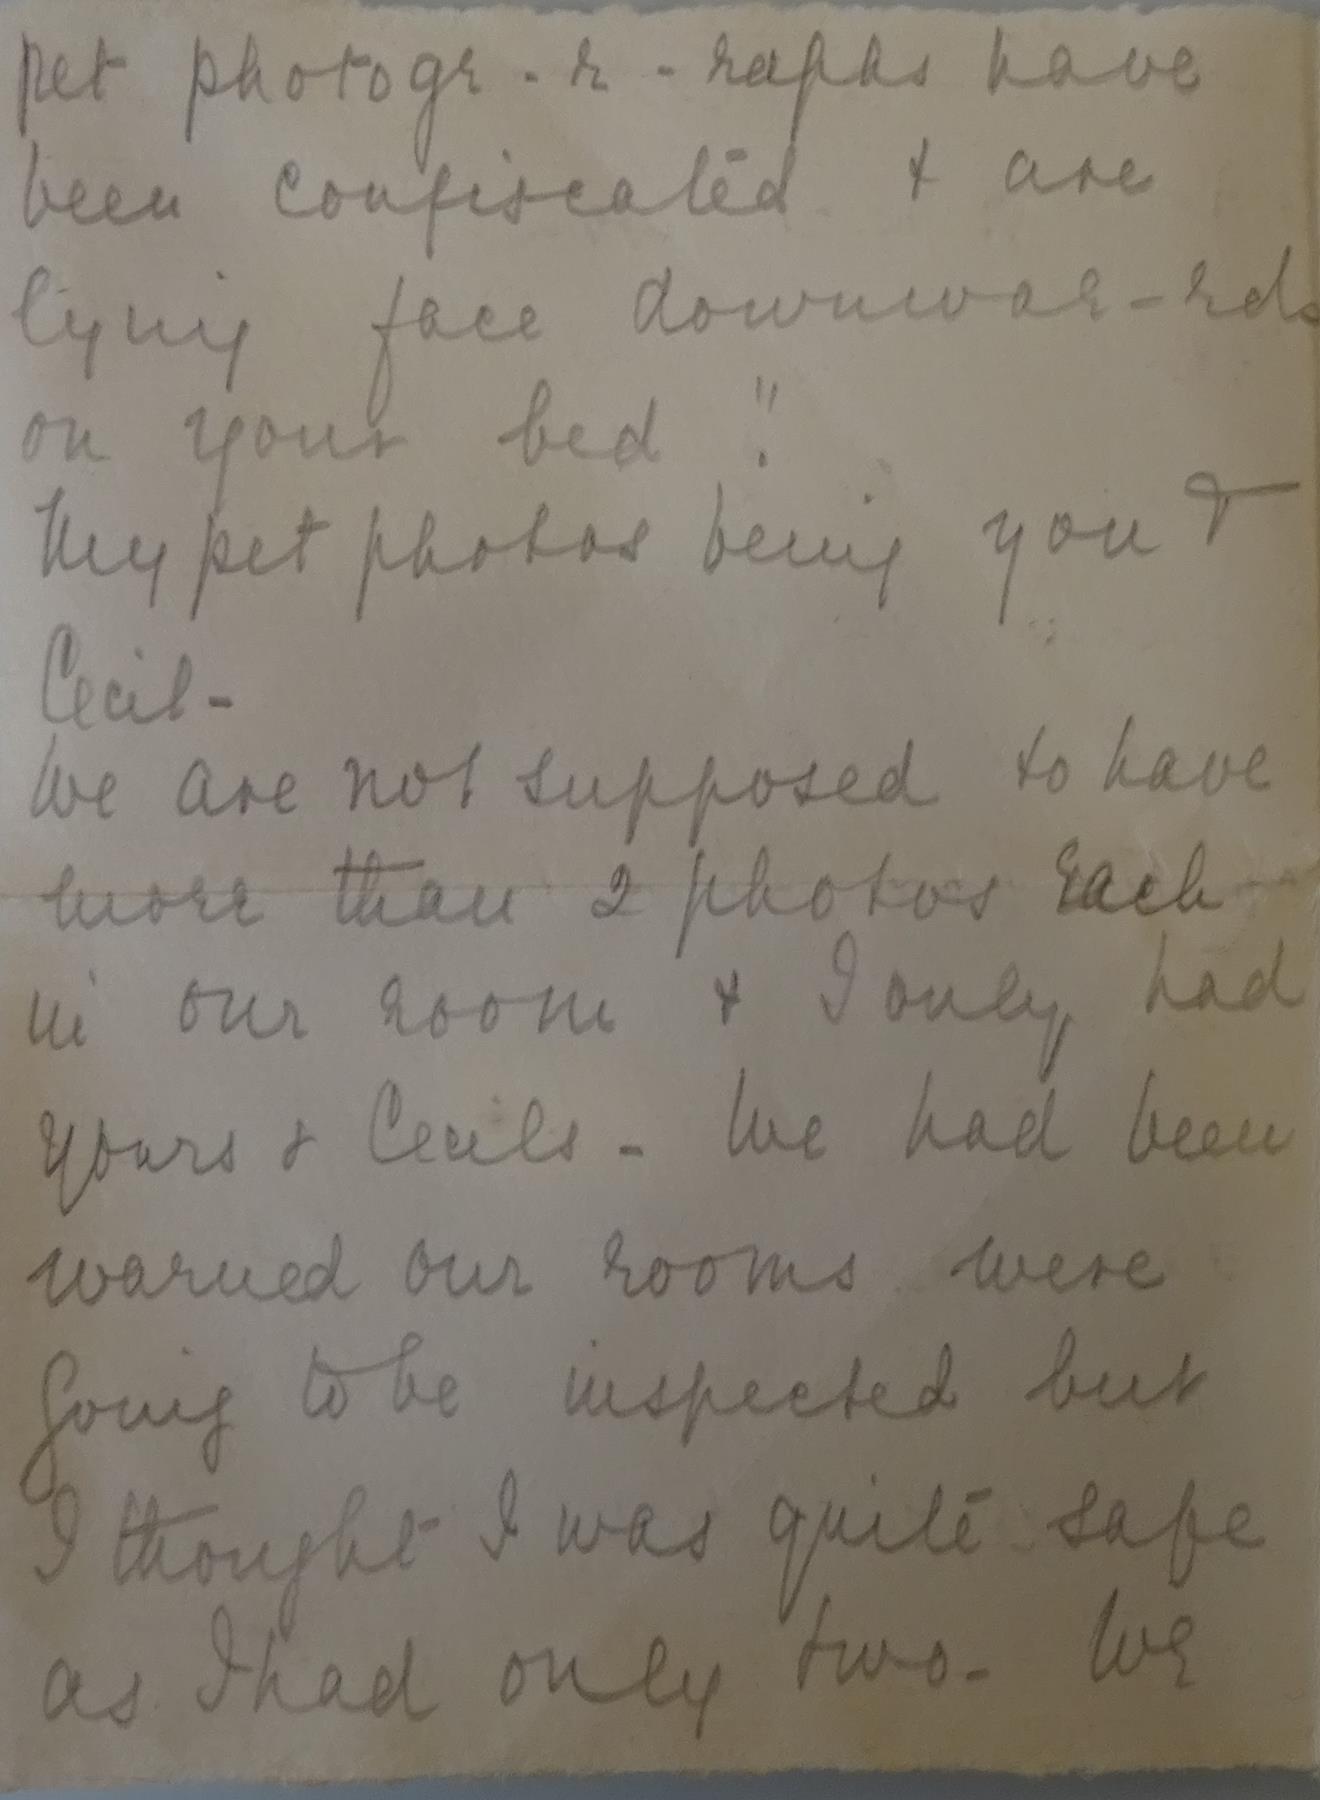 pet photogr - r - raphs have
been confiscated & are
lying face downwar-rds
on your bed!"
My pet photos being you &
Cecil -
We are not supposed to have
more than 2 photos each
in our room & I only had
yours & Cecils - We had been
warned our rooms were
going to be inspected but
I thought I was quite safe
as I had only two - We